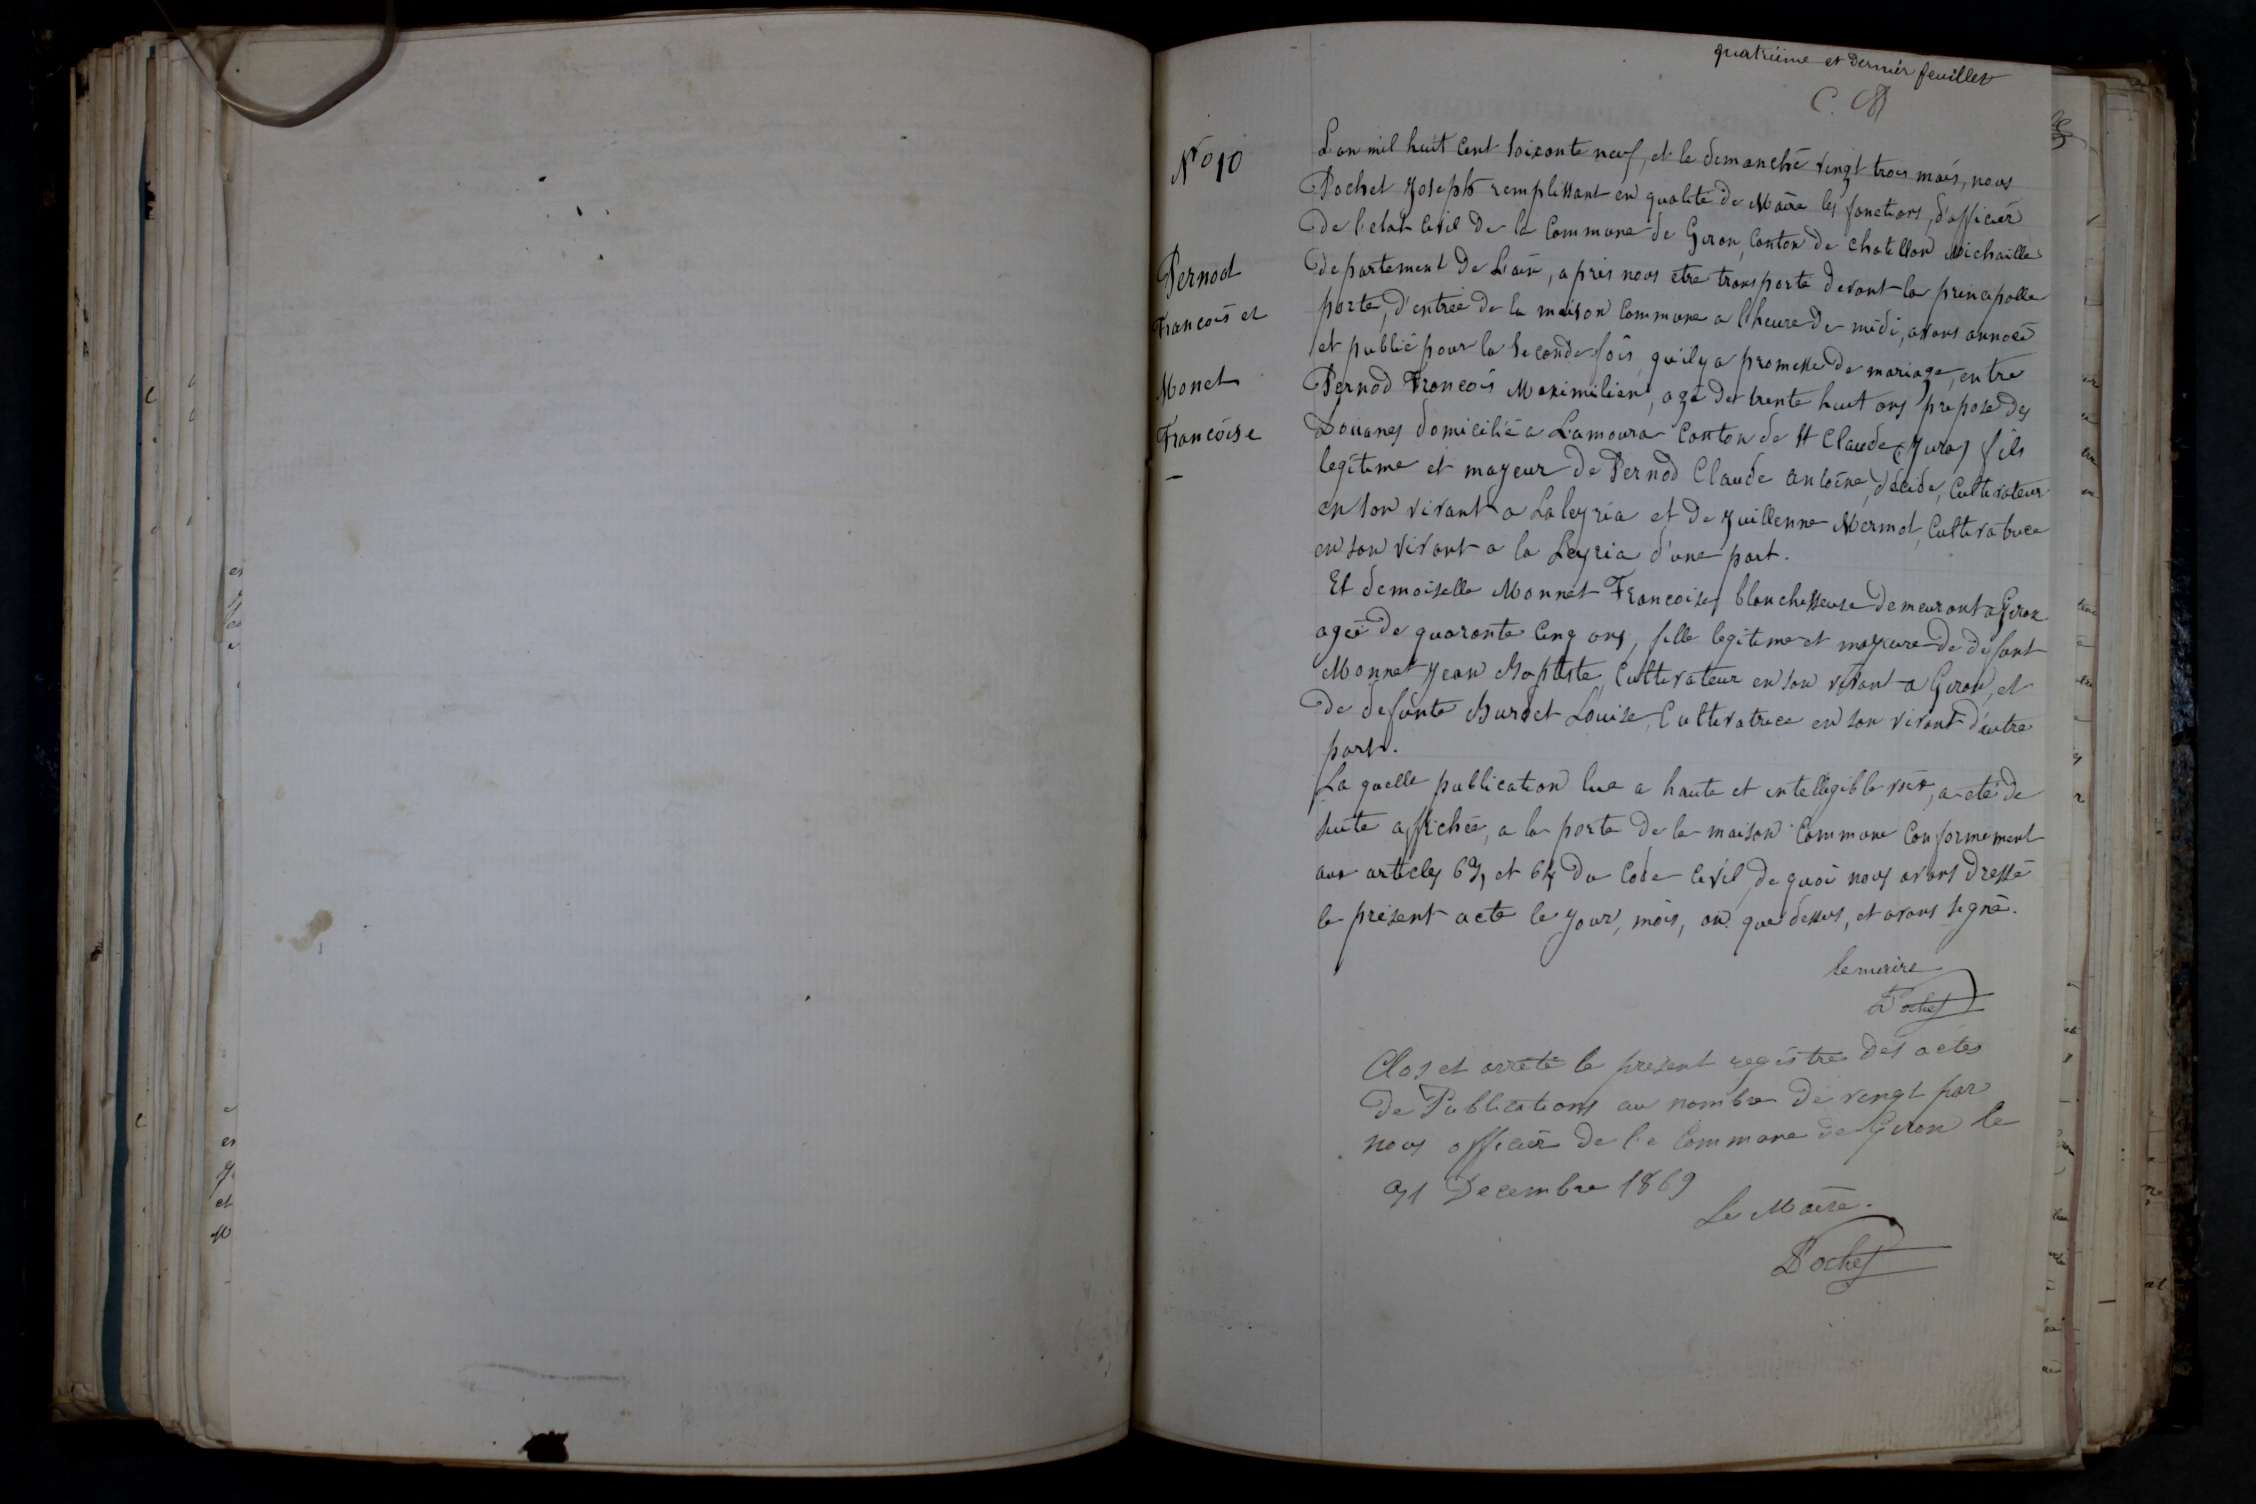 quatrième et dernier feuillet
N° 10
L'an mil huit cent soixante neuf, et le dimanche vingt trois mais, nous
Pochet Joseph remplissant en qualite de Maire les fonctions, d'officier
De l'etat civil de la Commune de Giron, Canton de Chatillon Michaille
Departement de L'ain, apres nous etre transporte devant la principalle
porte, d'entrée de la maison Commune a l'heure de midi, avons annocé
et publié pour la seconde fois, qu'il y a promesse de mariage, entre
Pernod
François et
Monet
Françoise
Pernod François Maximilien, agé de trente huit ans préposé des
Douanes domicilié a Lamoura Canton de St Claude (Jura) fils
legitime et mageur de Pernod Claude Antoine, décédé, Cultivateur
en son vivant a Laleyria et de Juillenne Mermet, Cultivatrice
en son vivant a la Leyria d'une part.
Et demoiselle Monnet Françoise, blanchesseuse demeurant a Giron
ageé de quaronte cinq ans, fille legitime et mageure de defunt
Monnet Jean Baptiste, Cultivateur en son vivant a Giron, et
de defunte Burdet Louise, Cultivatrice en son vivant d'autre
part.
La quelle publication lue a haute et intelligible voix, a eté de
suite affichée, a la porte de la maison Commune Conformement
aux articles 63, et 64 du Code Civil, de quoi nous avons dressé
le présent acte le jour, mois, an que dessus, et avons signé.
le maire
Pochet
Clos et arrêté le present registre des actes
De Publications au nombre de vingt par
nous officier de la Commune de Giron le
31 Decembre 1869
Le Maire.
Pochet